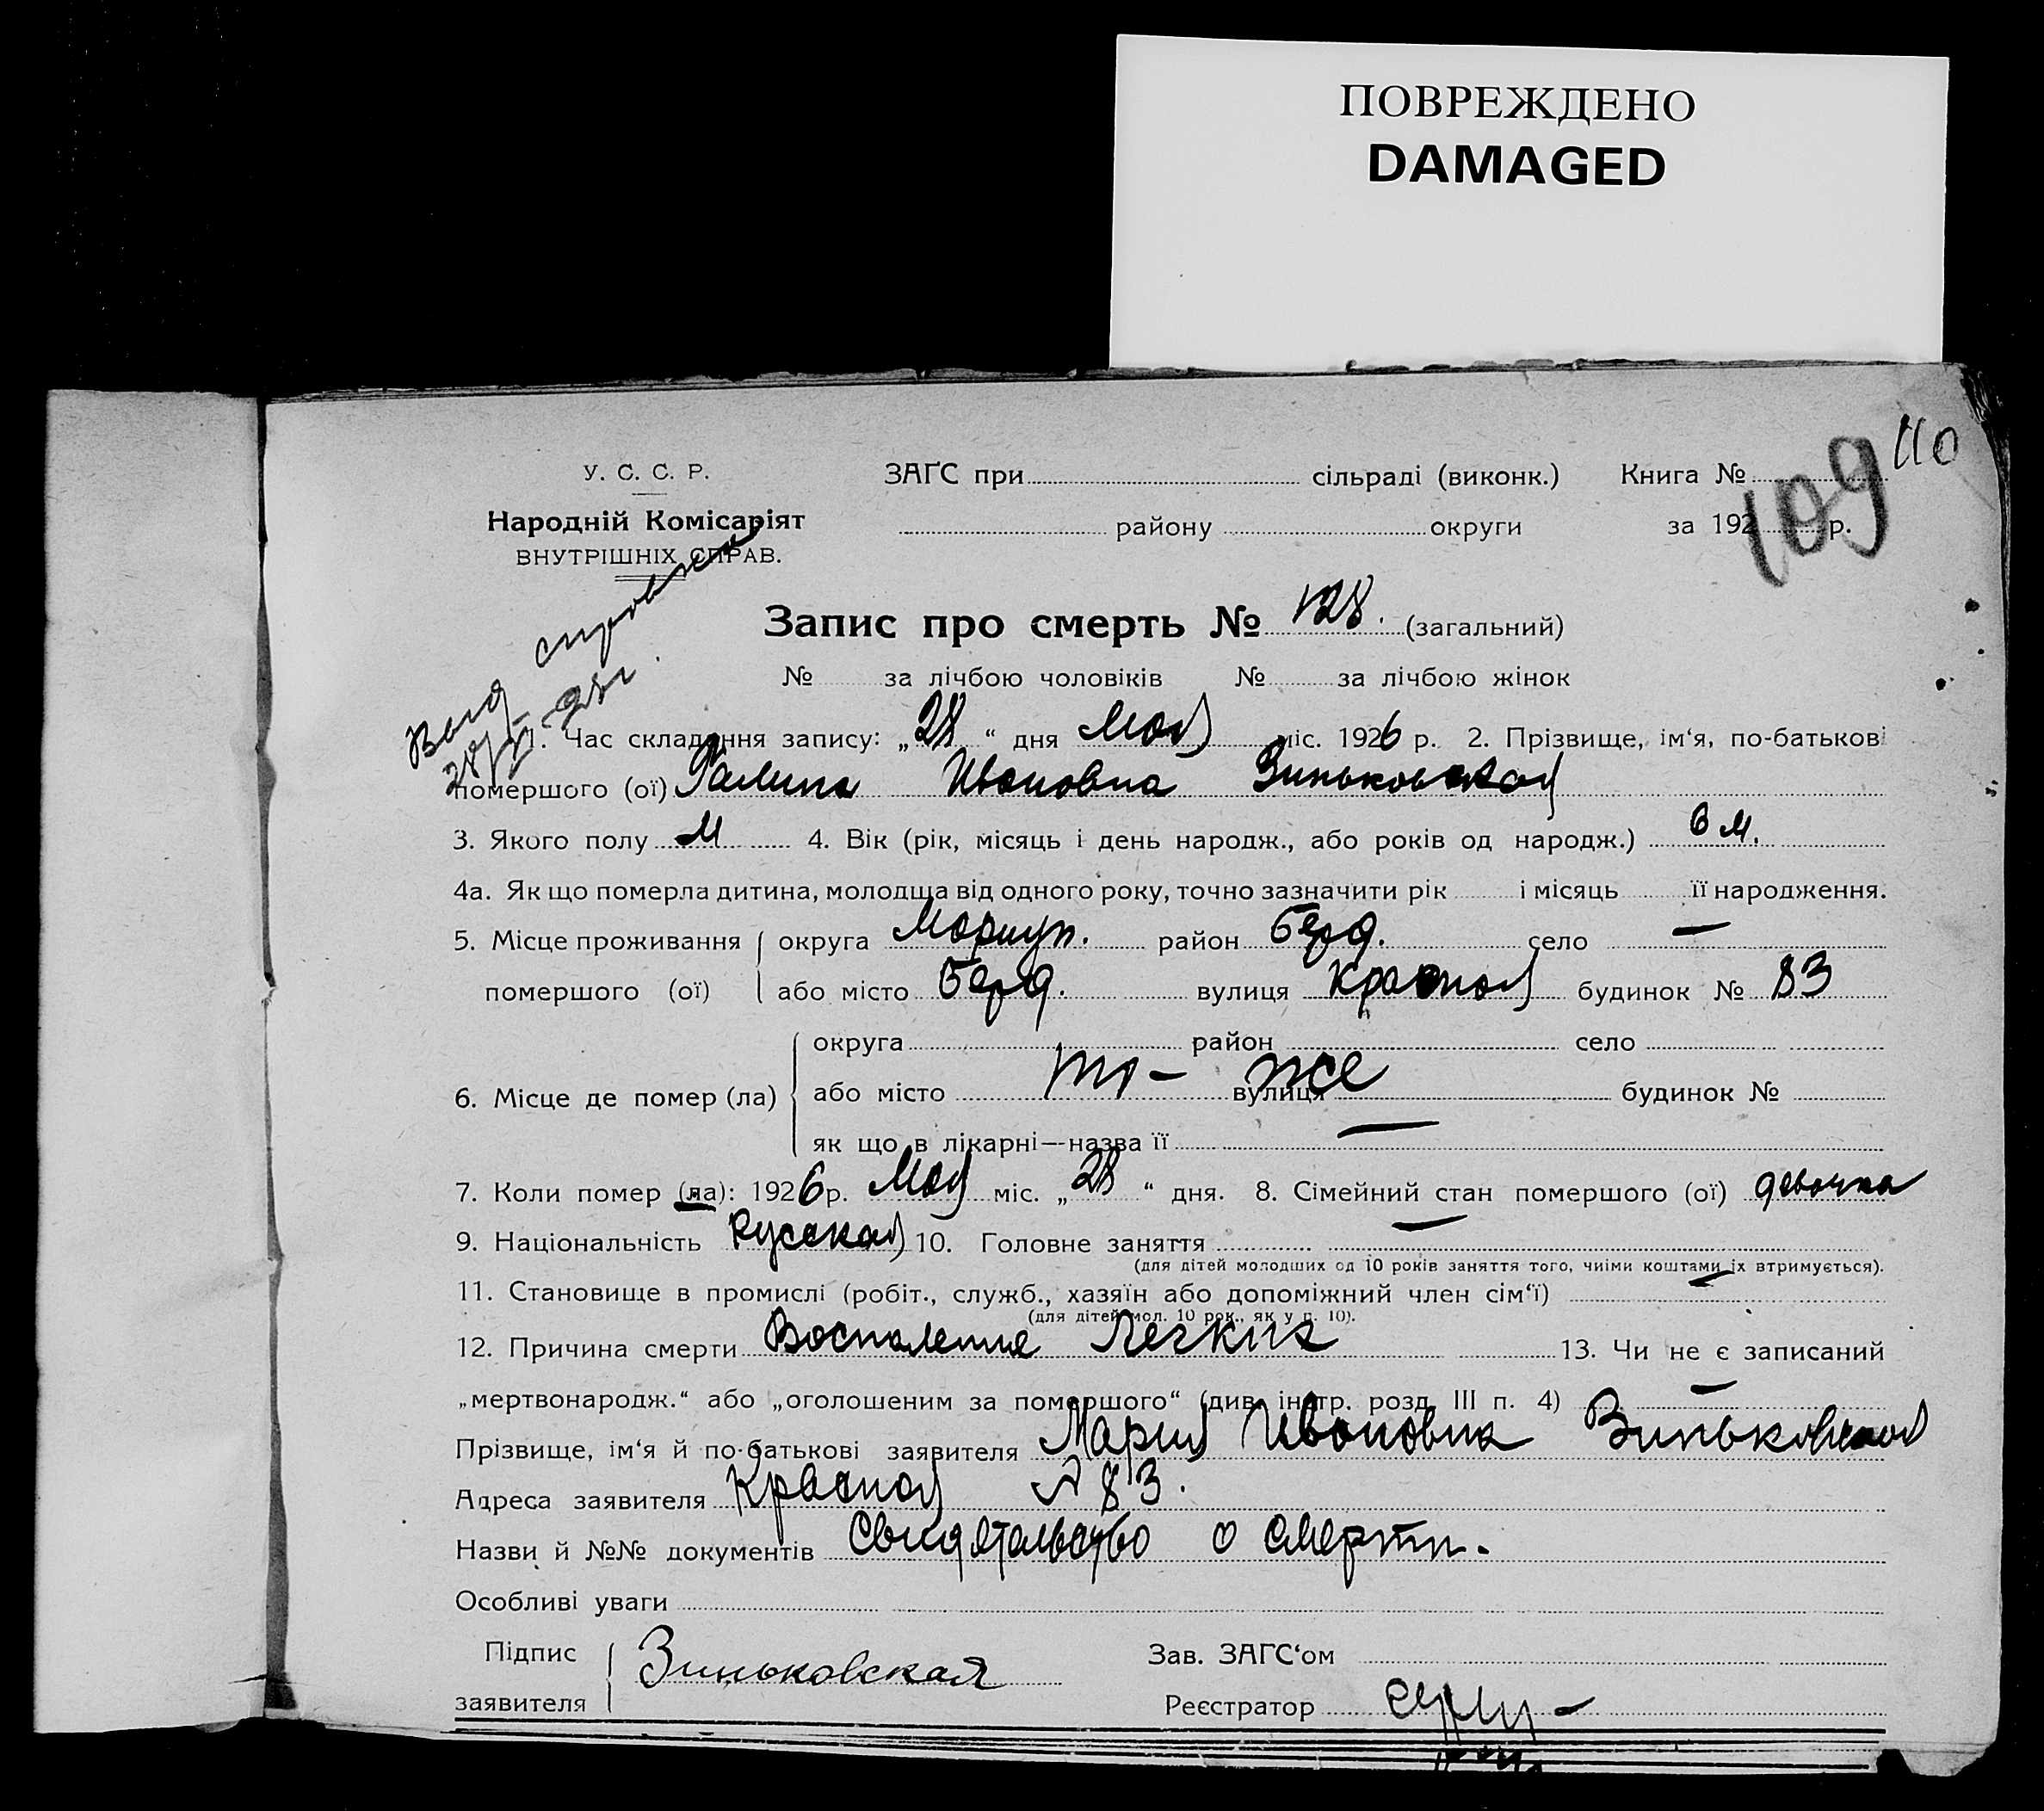 ПОВРЕЖДЕНО
DAMAGED
110
109
У. С. С. Р.
Народній Комісаріят
ВНУТРІШНІХ СПРАВ.
ЗАҐС при сільраді (виконк.) Книга №
району округи за 192 р.
Запис про смерть № 128. (загальний)
№ за лічбою чоловіків № за лічбою жінок
Выд справка
1. Час складання запису: „28“ дня Мая міс. 1926 р. 2. Прізвище, ім‘я, по-батькові
помершого (ої) Галина Ивановна Зиньковская
3. Якого полу М 4. Вік (рік, місяць і день народж., або років од народж.) 6 м.
4а. Як що померла дитина, молодща від одного року, точно зазначити рік і місяць її народження.
5. Місце проживання округа Мариуп. район Берд. село —
помершого (ої) або місто Берд. вулиця Красная будинок № 83
округа район село
6. Місце де помер (ла) або місто то - же вулиця будинок №
як що в лікарні—назва її —
7. Коли помер (ла): 1926 р. Мая міс. „28“ дня. 8. Сімейний стан помершого (ої) девочка
9. Національність Русская 10. Головне заняття —
(для дітей молодших од 10 років заняття того, чиїми коштами їх втримується).
11. Становище в промислі (робіт., служб., хазяїн або допоміжний член сім‘ї) —
(для дітей мол. 10 рок., як у п. 10).
12. Причина смерти Воспаление Легких 13. Чи не є записаний
„мертвонародж.“ або „оголошеним за помершого“ (див. інстр. розд. III п. 4) —
Прізвище, ім‘я й по-батькові заявителя Мария Ивановна Зиньковская
Адреса заявителя Красная № 83.
Назви й №№ документів Свидетельство о смерти.
Особливі уваги
Підпис заявителя Зиньковская
Зав. ЗАГС‘ом
Реєстратор